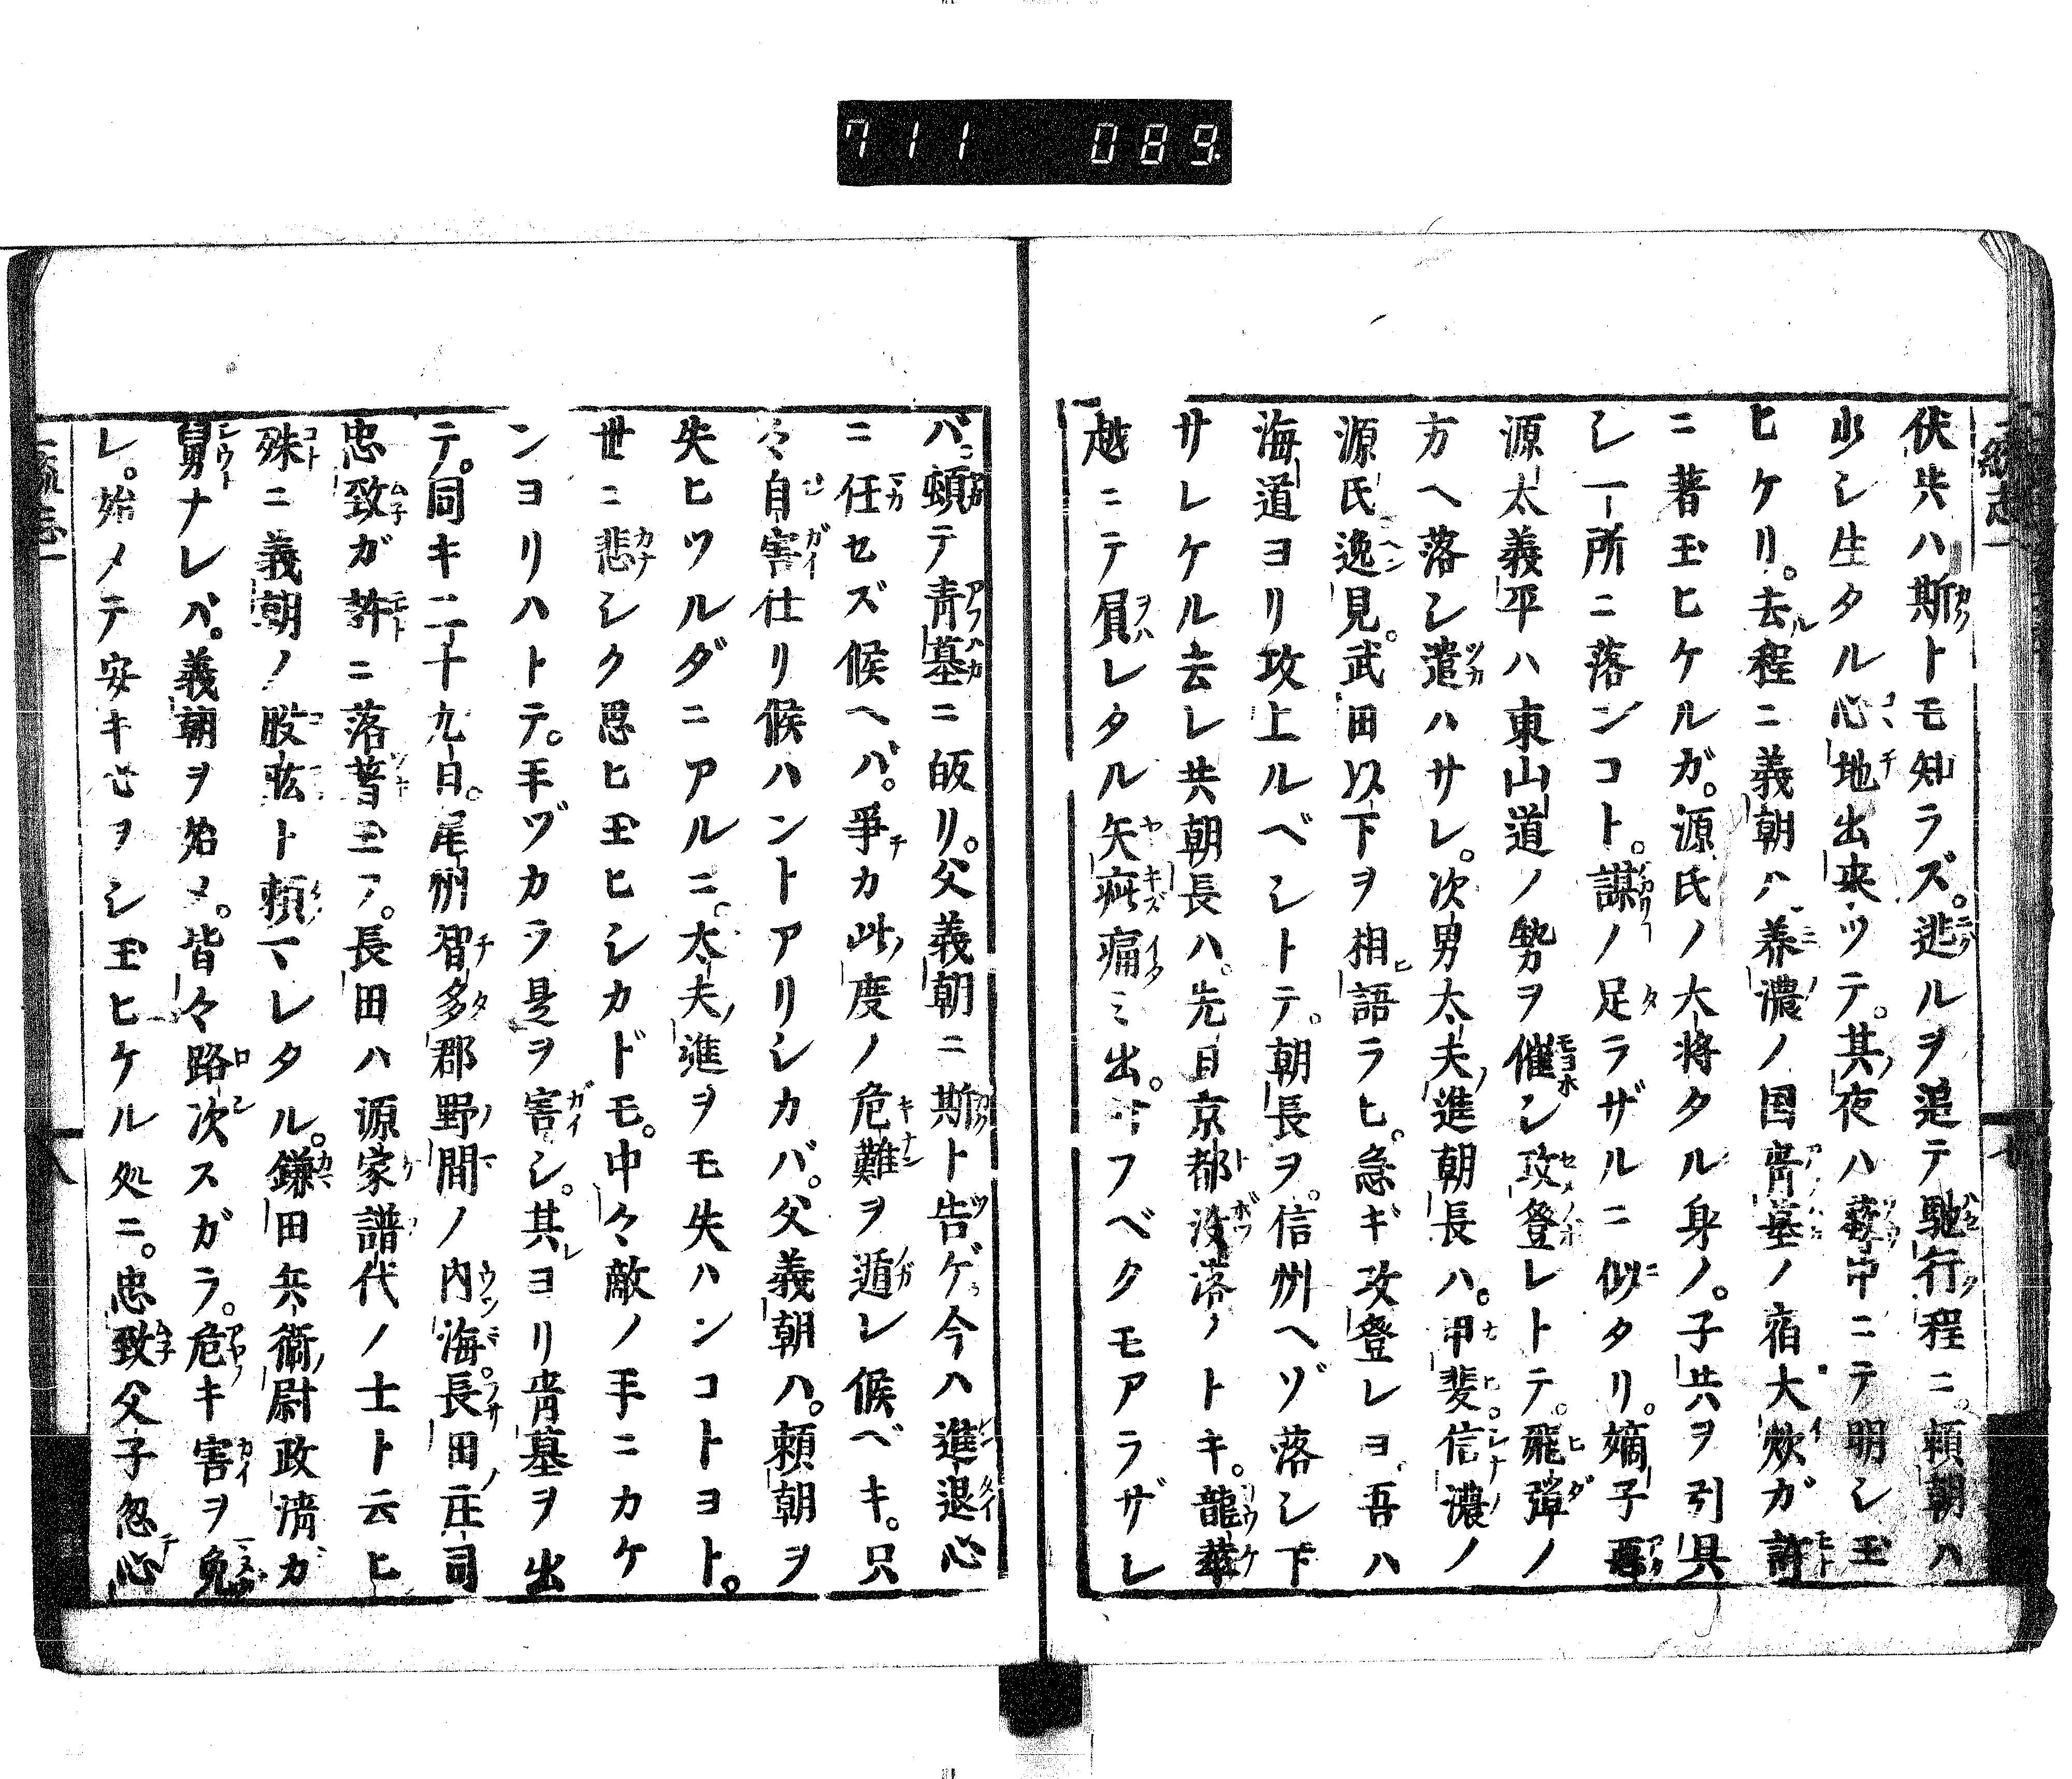 711 089
伏共ハ斯トモ知ラズ。逃ルヲ追テ馳行程ニ。頼朝ハ
少シ生タル心地出来ツテ。其夜ハ藪中ニテ明シ玉
ヒケリ。去程ニ義朝ハ養濃ノ国青墓ノ宿大炊ガ許
ニ著玉ヒケルガ。源氏ノ大将タル身ノ。子共ヲ引具
シ一所ニ落ンコト。謀ノ足ラザルニ似タリ。嫡子悪
源太義平ハ東山道ノ勢ヲ催シ攻登レトテ。飛弾ノ
方ヘ落シ遣ハサレ。次男太夫進朝長ハ。甲斐信濃ノ
源氏逸見。武田以下ヲ相語ラヒ。急ギ攻登レヨ吾ハ
海道ヨリ攻上ルベシトテ。朝長ヲ。信州ヘゾ落シ下
サレケル去レ共朝長ハ。先日京都没落ノトキ。龍華
越ニテ屓レタル矢疵痛ミ出。フベクモアラザレ
バ。頓テ青墓ニ皈リ。父義朝ニ斯ト告ゲ。今ハ進退心
ニ任セズ候ヘバ。爭カ此度ノ危難ヲ遁レ候ベキ。只
々自害仕リ候ハントアリシカバ。父義朝ハ。頼朝ヲ
失ヒツルダニアルニ。太夫進ヲモ失ハンコトヨト。
世ニ悲シク思ヒ玉ヒシカドモ。中々敵ノ手ニカケ
ンヨリハトテ。手ヅカラ是ヲ害シ。其ヨリ青墓ヲ出
テ。同キ二十九日。尾州智多郡野間ノ内海。長田庄司
忠致ガ許ニ落著玉フ。長田ハ源家譜代ノ士ト云ヒ
殊ニ義朝ノ股肱ト頼マレタル。鎌田兵衛尉政清ガ
舅ナレバ。義朝ヲ始メ。皆々路次スガラ。危キ害ヲ免
レ。始メテ安キ心ヲシ玉ヒケル処ニ。忠致父子忽心